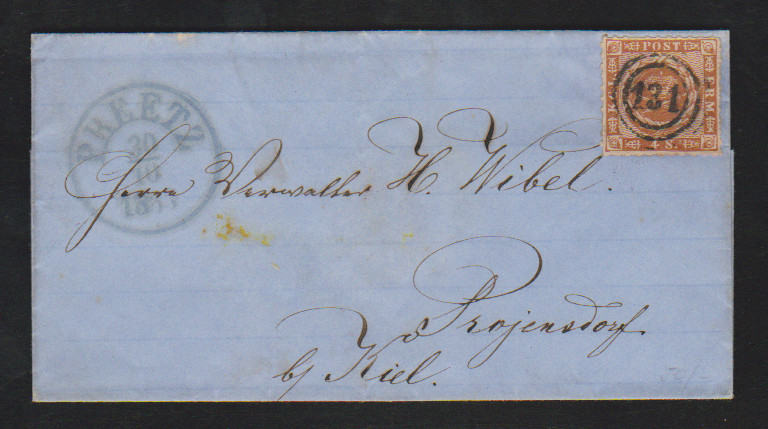 POST
K FRM
131
4 S.
PREETZ
30
10
Herrn Verwalter H. Wibel.
Projensdorf
b/ Kiel.